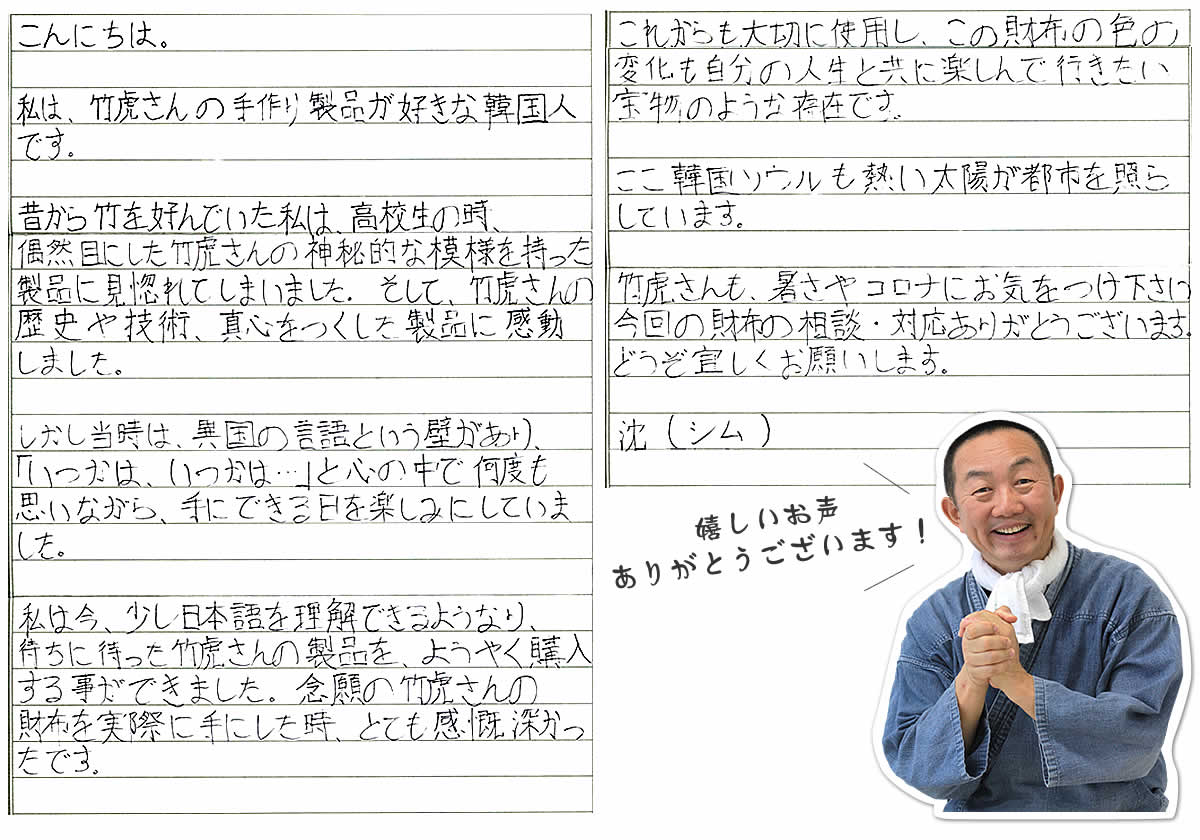 こんにちは。
私は、竹虎さんの手作り製品が好きな韓国人
です。
昔から竹を好んでいた私は、高校生の時、
偶然目にした竹虎さんの神秘的な模様を持った
製品に見惚れてしまいました。そして、竹虎さんの
歴史や技術、真心をつくした製品に感動
しました。
しかし当時は、異国の言語という壁があり、
「いつかは、いつかは…」と心の中で何度も
思いながら、手にできる日を楽しみにしていま
した。
私は今、少し日本語を理解できるようなり、
待ちに待った竹虎さんの製品を、ようやく購入
する事ができました。念願の竹虎さんの
財布を実際に手にした時、とても感慨深かっ
たです。
これからも大切に使用し、この財布の色の
変化も自分の人生と共に楽しんで行きたい
宝物のような存在です。
ここ韓国ソウルも熱い太陽が都市を照ら
しています。
竹虎さんも、暑さやコロナにお気をつけ下さい
今回の財布の相談・対応ありがとうございます。
どうぞ宜しくお願いします。
沈(シム)
嬉しいお声
ありがとうございます!